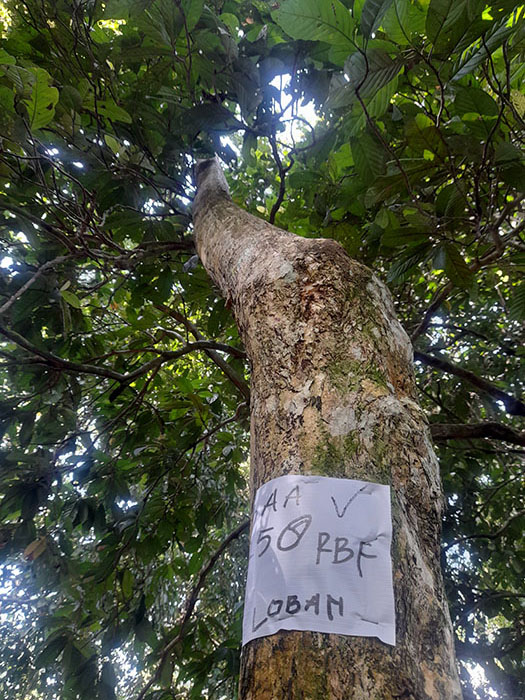 AA V
50 RBF
LOBAN